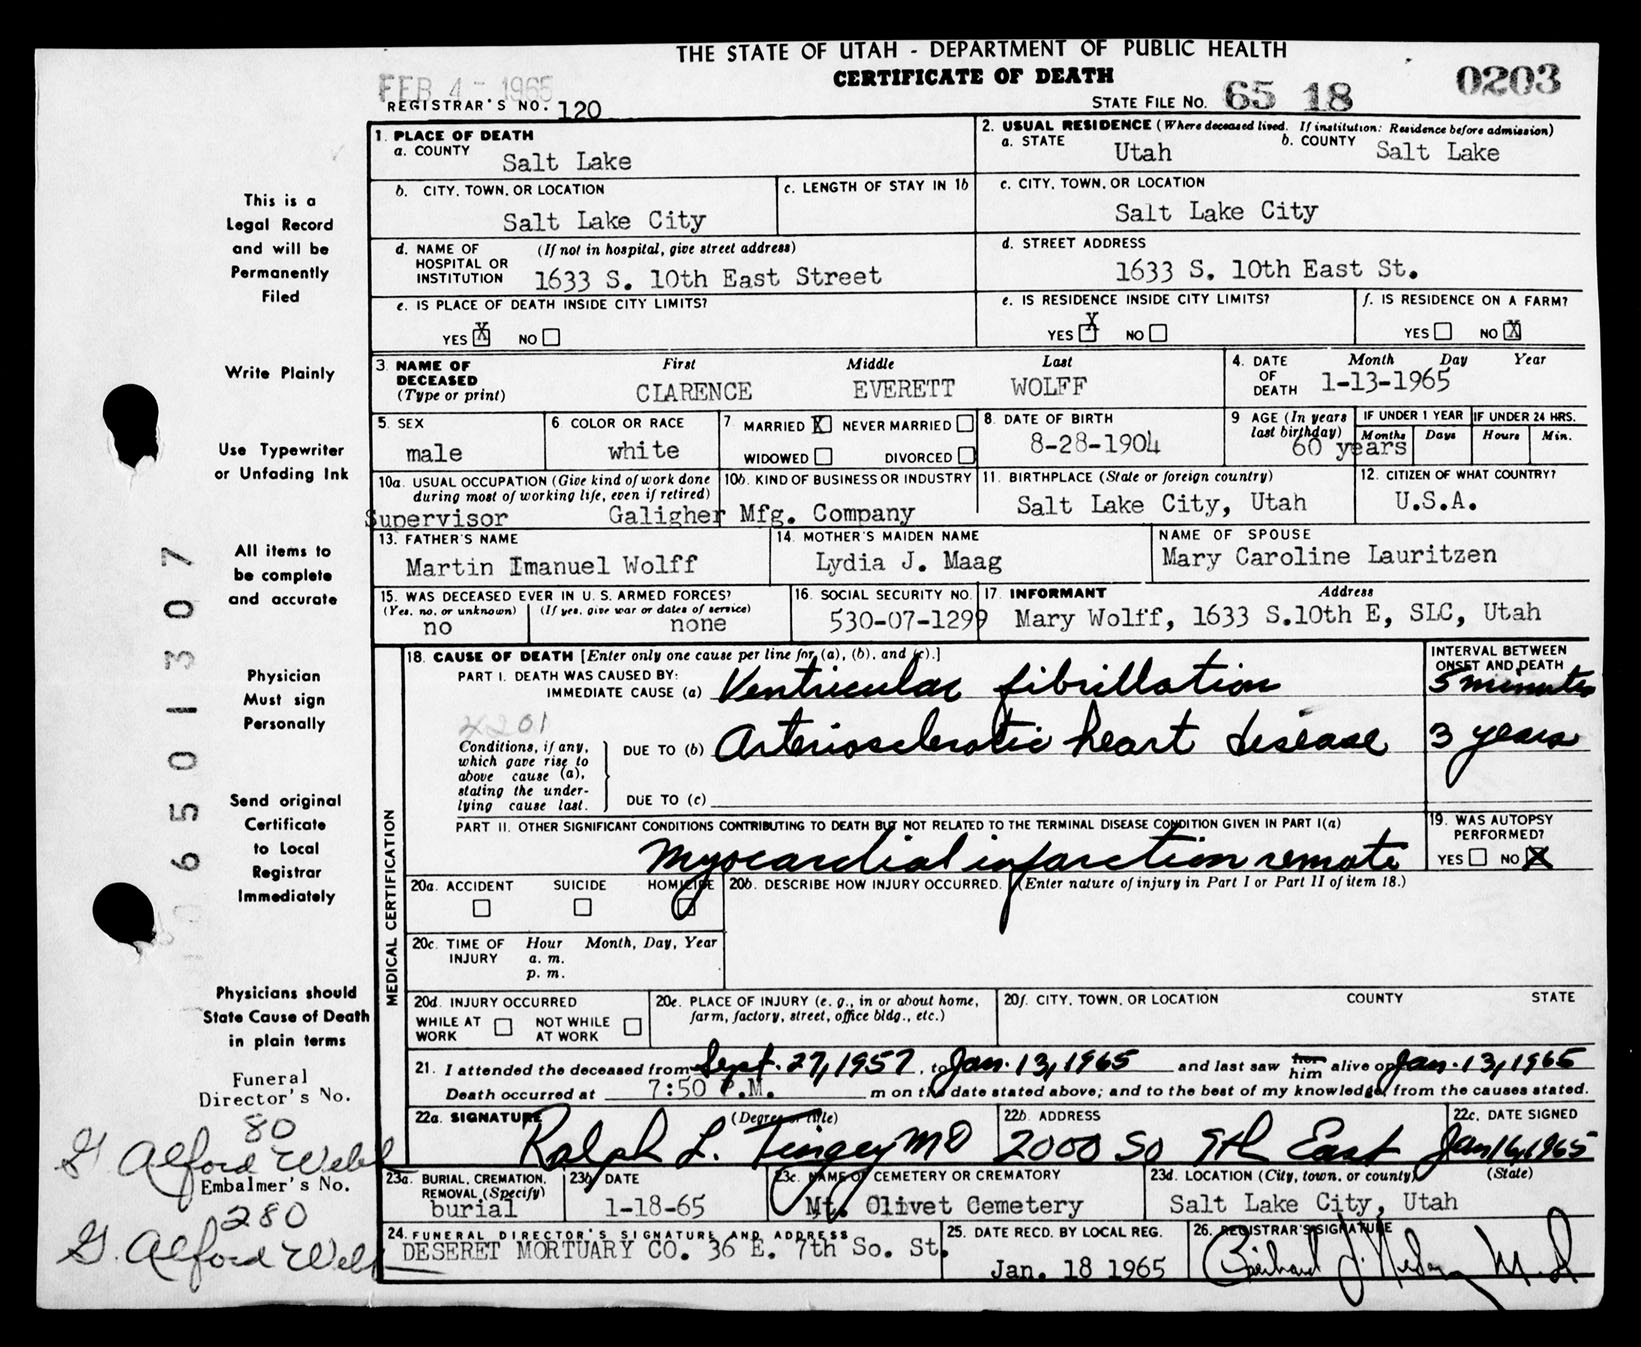 THE STATE OF UTAH - DEPARTMENT OF PUBLIC HEALTH
CERTIFICATE OF DEATH
FEB 4 - 1965
REGISTRAR'S NO. 120
STATE FILE NO. 65 18 0203
1. PLACE OF DEATH
a. COUNTY Salt Lake
2. USUAL RESIDENCE (Where deceased lived. If institution: Residence before admission)
a. STATE Utah b. COUNTY Salt Lake
b. CITY, TOWN, OR LOCATION Salt Lake City
c. LENGTH OF STAY IN 1b
c. CITY, TOWN, OR LOCATION Salt Lake City
d. NAME OF HOSPITAL OR INSTITUTION (If not in hospital, give street address)
1633 S. 10th East Street
d. STREET ADDRESS
1633 S. 10th East St.
e. IS PLACE OF DEATH INSIDE CITY LIMITS?
YES X NO
e. IS RESIDENCE INSIDE CITY LIMITS?
YES X NO
f. IS RESIDENCE ON A FARM?
YES NO X
3. NAME OF DECEASED (Type or print)
First Middle Last
CLARENCE EVERETT WOLFF
4. DATE OF DEATH Month Day Year
1-13-1965
5. SEX male
6 COLOR OR RACE white
7 MARRIED X NEVER MARRIED
WIDOWED DIVORCED
8 DATE OF BIRTH
8-28-1904
9 AGE (In years last birthday)
60 years
IF UNDER 1 YEAR IF UNDER 24 HRS.
Months Days Hours Min.
10a. USUAL OCCUPATION (Give kind of work done during most of working life, even if retired)
Supervisor
10b. KIND OF BUSINESS OR INDUSTRY
Galigher Mfg. Company
11. BIRTHPLACE (State or foreign country)
Salt Lake City, Utah
12. CITIZEN OF WHAT COUNTRY?
U.S.A.
13. FATHER'S NAME
Martin Imanuel Wolff
14. MOTHER'S MAIDEN NAME
Lydia J. Maag
NAME OF SPOUSE
Mary Caroline Lauritzen
15. WAS DECEASED EVER IN U.S. ARMED FORCES?
(Yes, no, or unknown) (If yes, give war or dates of service)
no none
16. SOCIAL SECURITY NO.
530-07-1299
17. INFORMANT Address
Mary Wolff, 1633 S.10th E, SLC, Utah
18. CAUSE OF DEATH [Enter only one cause per line for (a), (b), and (c).]
INTERVAL BETWEEN ONSET AND DEATH
PART I. DEATH WAS CAUSED BY:
IMMEDIATE CAUSE (a) Ventricular fibrillation 5 minutes
4201
Conditions, if any, which gave rise to above cause (a), stating the underlying cause last.
DUE TO (b) Arteriosclerotic heart disease 3 years
DUE TO (c)
PART II. OTHER SIGNIFICANT CONDITIONS CONTRIBUTING TO DEATH BUT NOT RELATED TO THE TERMINAL DISEASE CONDITION GIVEN IN PART I(a)
Myocardial infarction remote
19. WAS AUTOPSY PERFORMED?
YES NO X
20a. ACCIDENT SUICIDE HOMICIDE
20b. DESCRIBE HOW INJURY OCCURRED. (Enter nature of injury in Part I or Part II of item 18.)
20c. TIME OF INJURY Hour Month, Day, Year
a. m.
p. m.
20d. INJURY OCCURRED
WHILE AT WORK NOT WHILE AT WORK
20e. PLACE OF INJURY (e. g., in or about home, farm, factory, street, office bldg., etc.)
20f. CITY, TOWN, OR LOCATION COUNTY STATE
21. I attended the deceased from Sept. 27, 1957, to Jan. 13, 1965 and last saw her him alive on Jan. 13, 1965
Death occurred at 7:50 P.M. m on the date stated above; and to the best of my knowledge, from the causes stated.
22a. SIGNATURE (Degree or title)
Ralph L. Tingey MD
22b. ADDRESS
2000 So 9th East
22c. DATE SIGNED
Jan 16, 1965
23a. BURIAL, CREMATION, REMOVAL (Specify)
burial
23b DATE
1-18-65
23c. NAME OF CEMETERY OR CREMATORY
Mt. Olivet Cemetery
23d. LOCATION (City, town, or county) (State)
Salt Lake City, Utah
24. FUNERAL DIRECTOR'S SIGNATURE AND ADDRESS
DESERET MORTUARY CO. 36 E. 7th So. St.
25. DATE RECD. BY LOCAL REG.
Jan. 18 1965
26. REGISTRAR'S SIGNATURE
MEDICAL CERTIFICATION
This is a
Legal Record
and will be
Permanently
Filed
Write Plainly
Use Typewriter
or Unfading Ink
All items to
be complete
and accurate
Physician
Must sign
Personally
Send original
Certificate
to Local
Registrar
Immediately
Physicians should
State Cause of Death
in plain terms
Funeral
Director's No.
80
G. Alford Webb
Embalmer's No.
280
G. Alford Webb
6501307